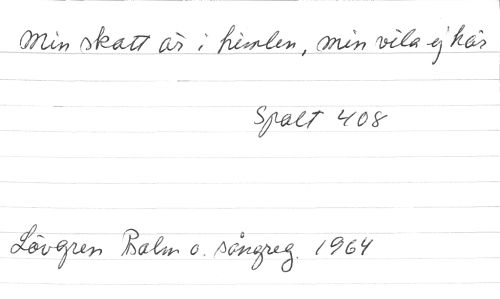 Min skatt är i himlen, min vila ej här
Spalt 408
Lövgren Psalm o. sångreg. 1964